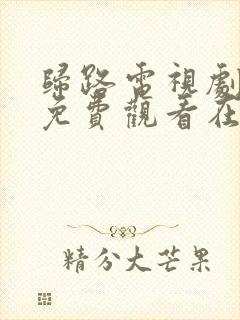 歸路電視劇
免費觀看在
精分大芒果